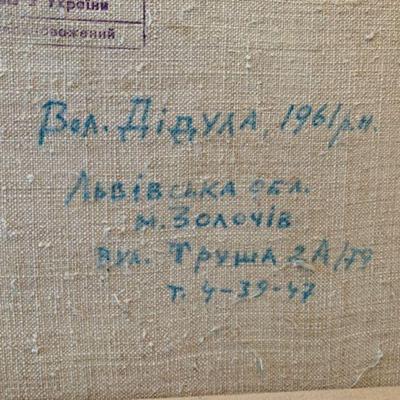 з України
Вол. Дідула, 1961 р.н.
Львівська обл.
м. Золочів
вул. Труша 2А/79
т. 4-39-47